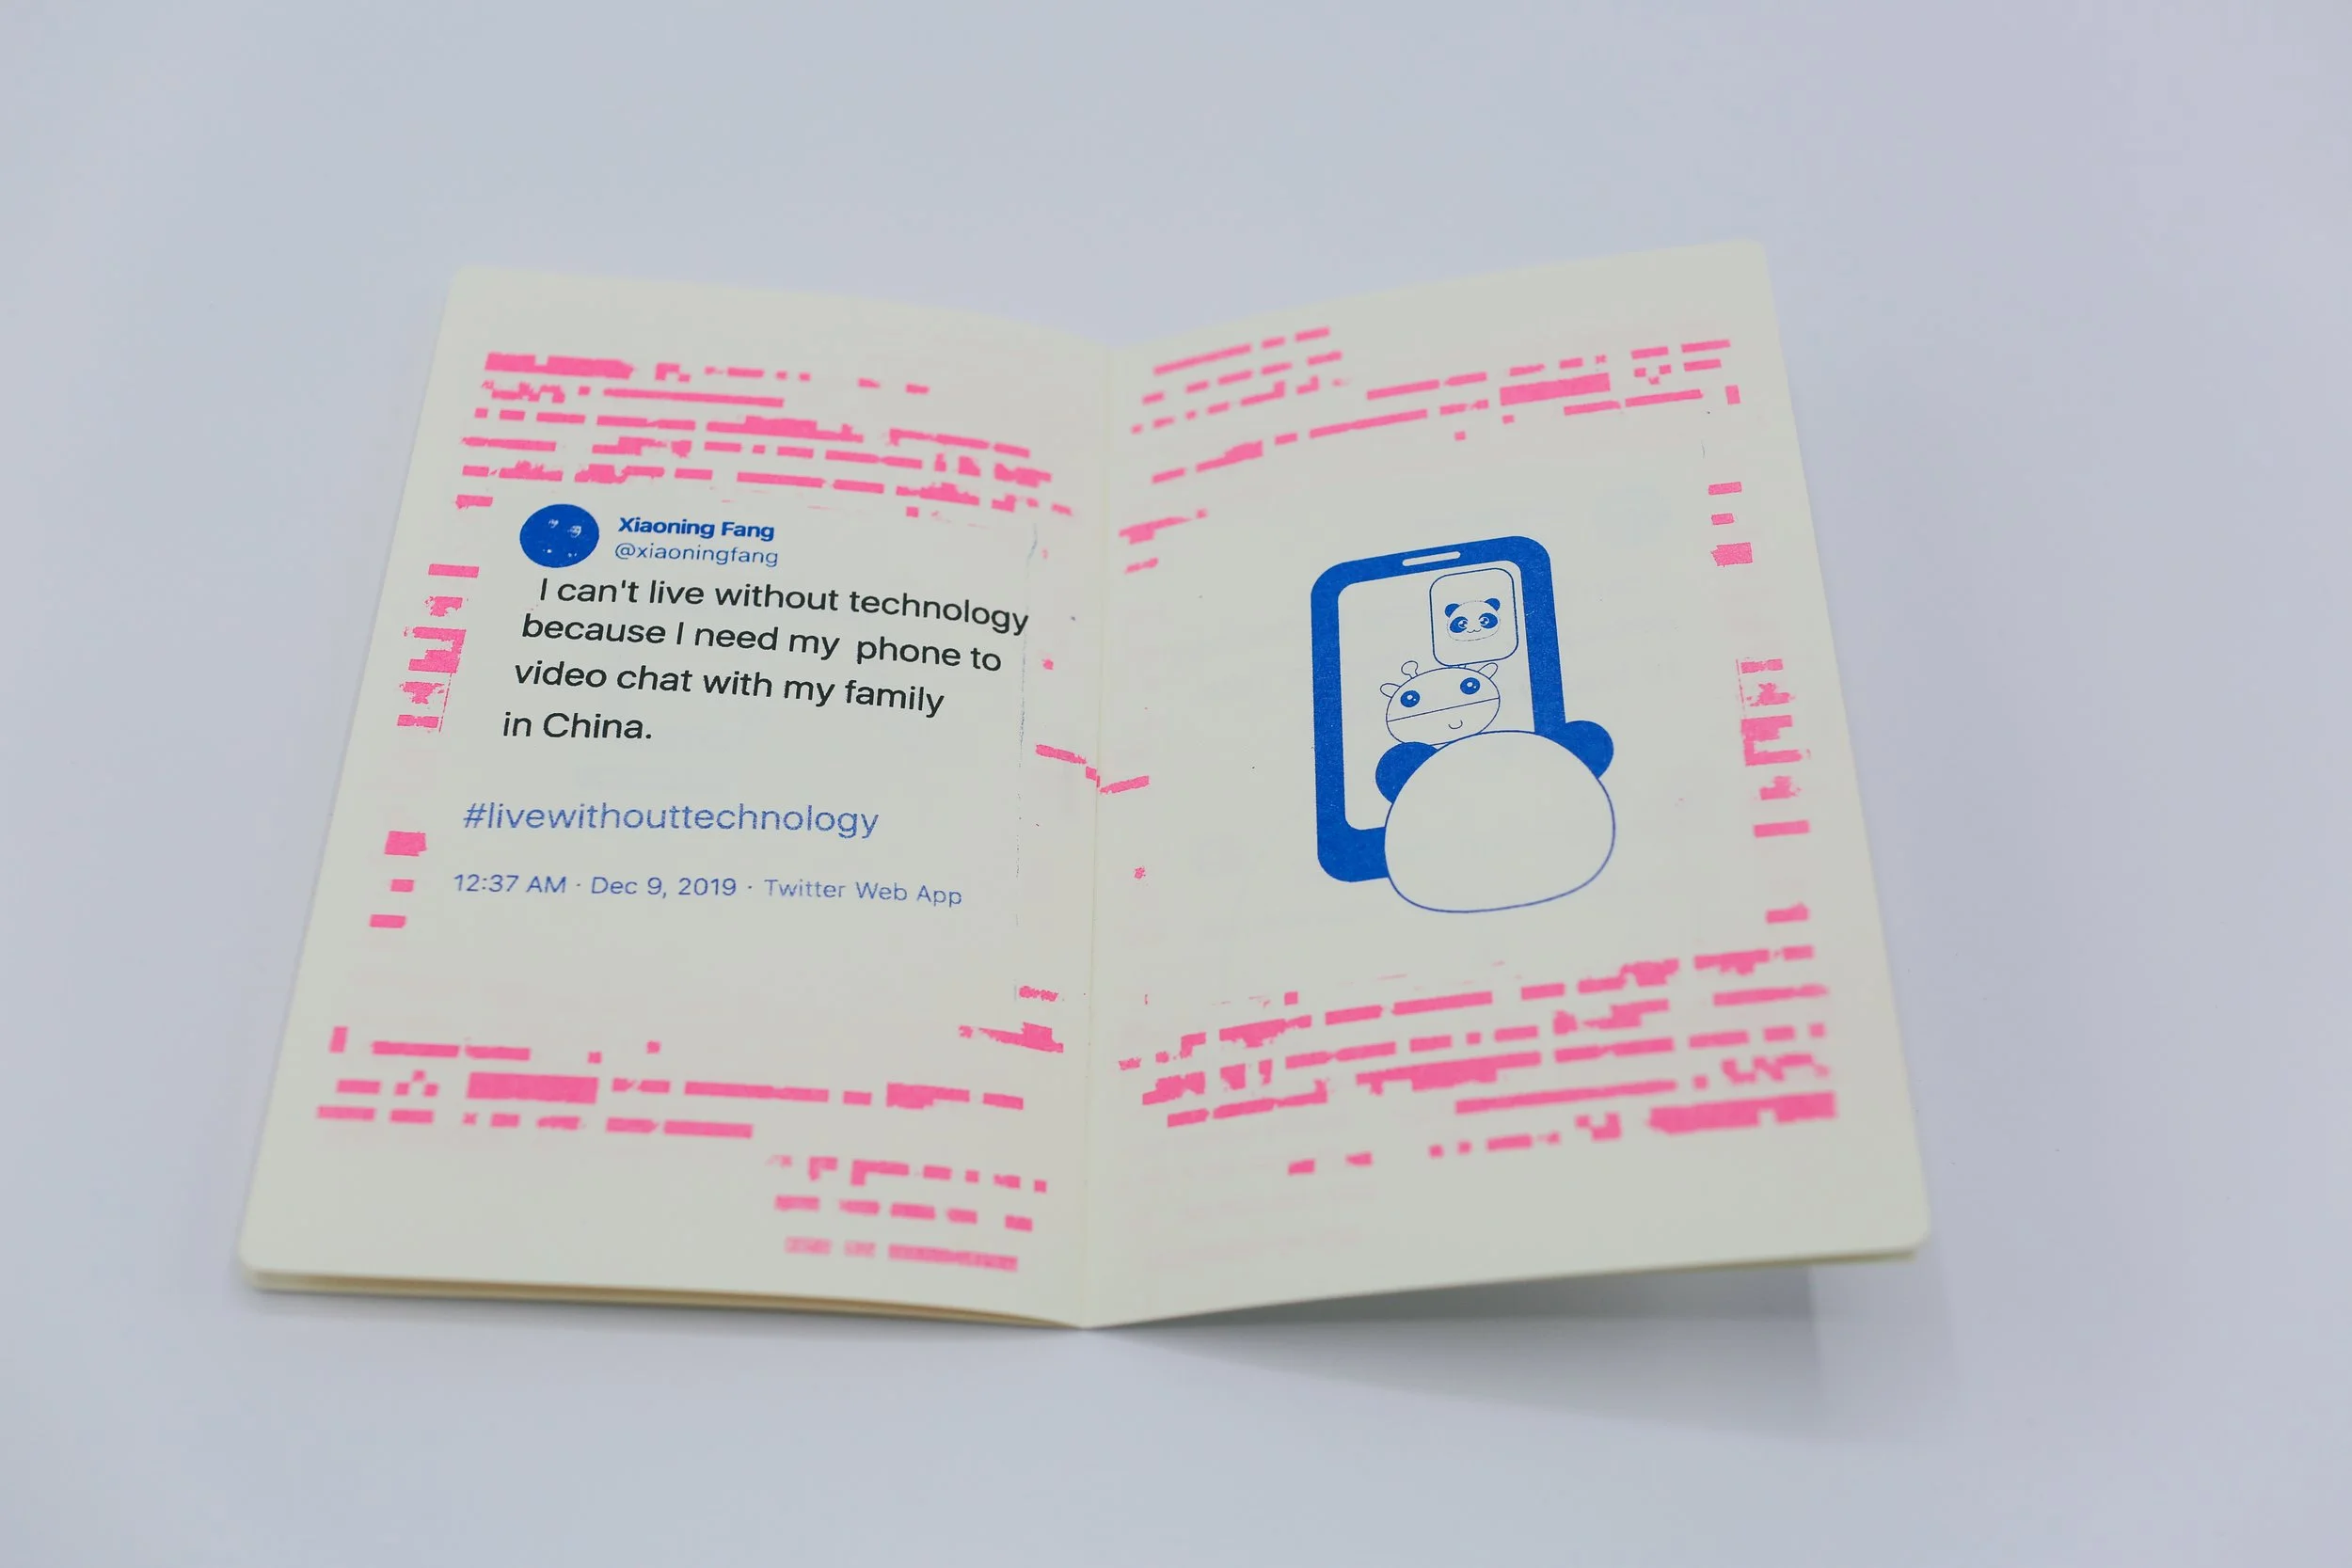 Xiaoning Fang
@xiaoningfang
I can't live without technology
because I need my phone to
video chat with my family
in China.
#livewithouttechnology
12:37 AM · Dec 9, 2019 · Twitter Web App